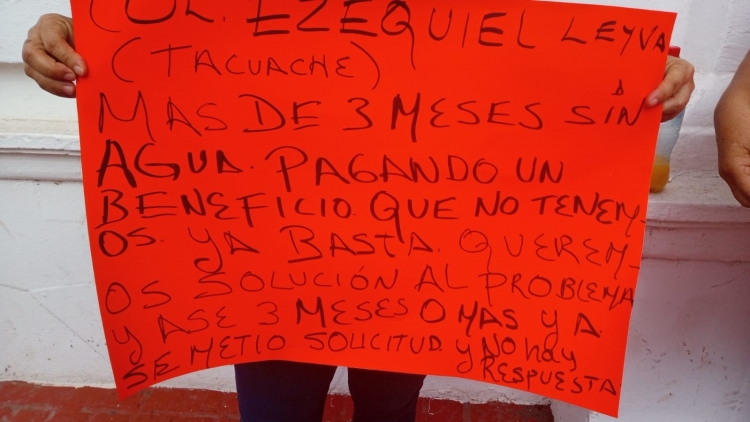 COL. EZEQUIEL LEYVA
(TACUACHE)
MAS DE 3 MESES SIN
AGUA. PAGANDO UN
BENEFICIO QUE NO TENEM-
OS. YA BASTA. QUEREM-
OS SOLUCIÓN AL PROBLEMA
Y ASE 3 MESES O MAS YA
SE METIO SOLICITUD Y NO hay
RESPUESTA